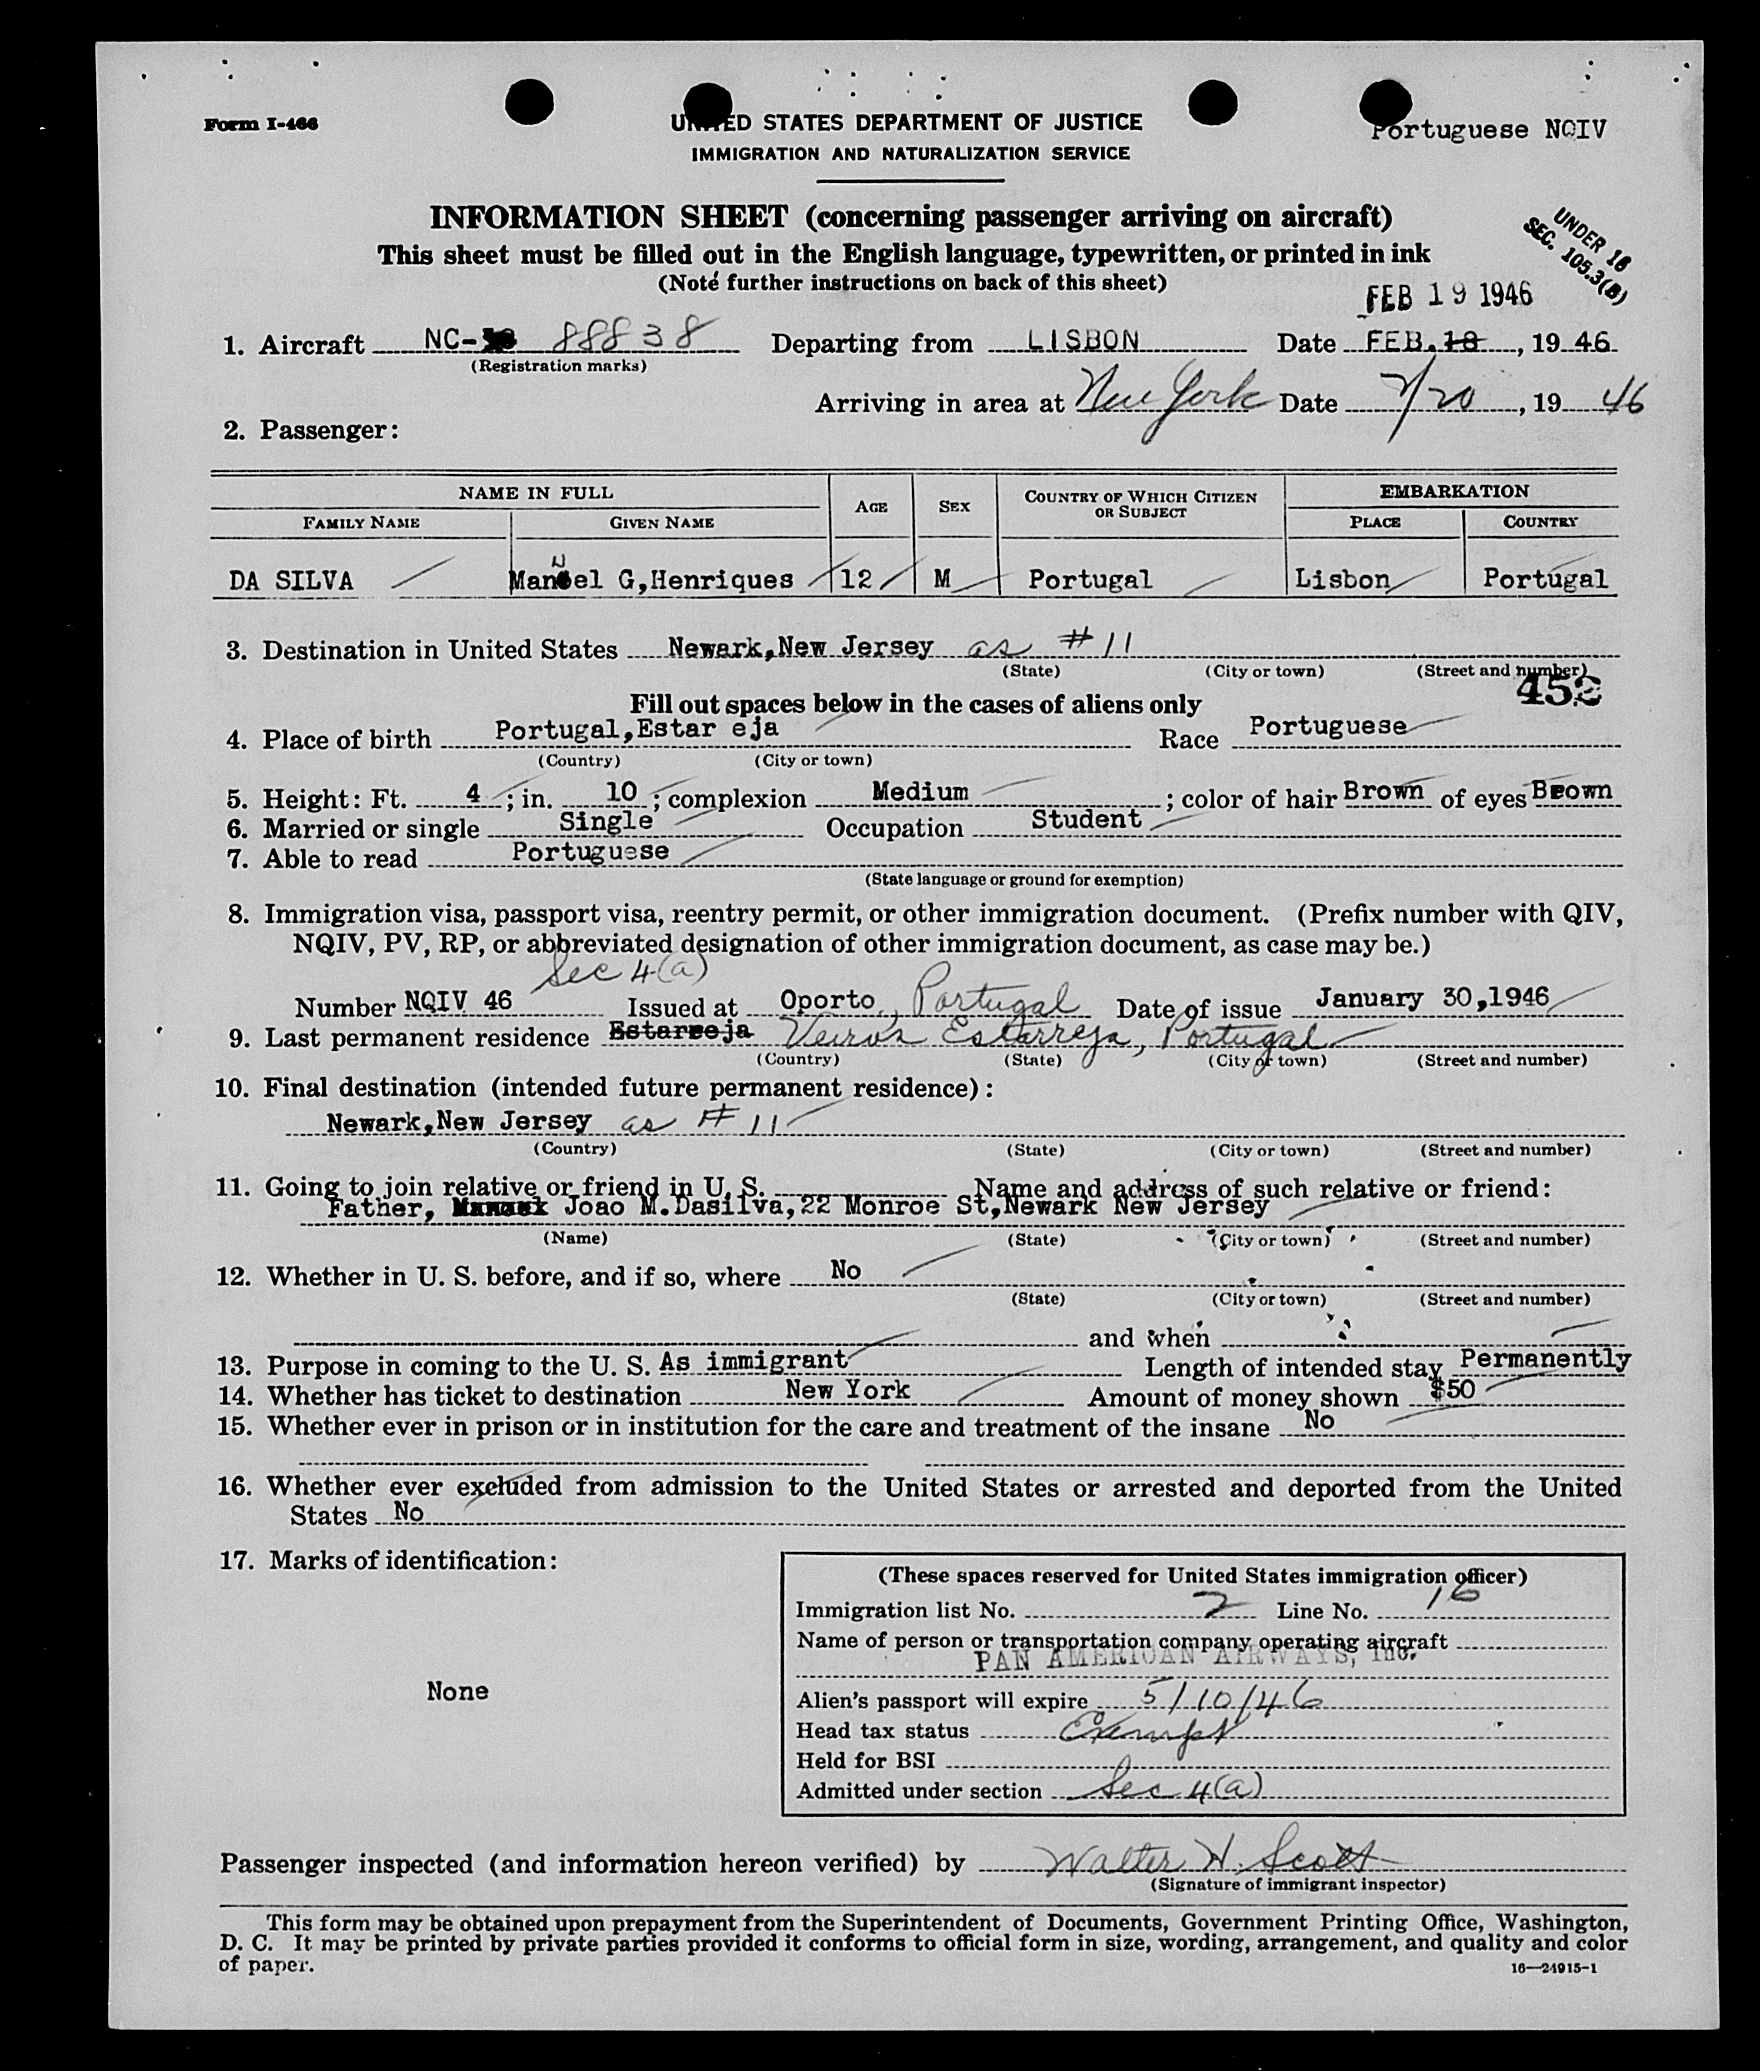 Form I-466
UNITED STATES DEPARTMENT OF JUSTICE
Portuguese NQIV
IMMIGRATION AND NATURALIZATION SERVICE
INFORMATION SHEET (concerning passenger arriving on aircraft)
This sheet must be filled out in the English language, typewritten, or printed in ink
(Note further instructions on back of this sheet)
UNDER 16
SEC. 105.3(B)
FEB 19 1946
1. Aircraft NC- 88838 Departing from LISBON Date FEB. 18, 1946
(Registration marks)
Arriving in area at New York Date 2/20, 19 46
2. Passenger:
NAME IN FULL AGE SEX COUNTRY OF WHICH CITIZEN OR SUBJECT EMBARKATION
FAMILY NAME GIVEN NAME PLACE COUNTRY
DA SILVA Manuel G,Henriques 12 M Portugal Lisbon Portugal
3. Destination in United States Newark,New Jersey as #11
(State) (City or town) (Street and number)
452
Fill out spaces below in the cases of aliens only
4. Place of birth Portugal,Estar eja Race Portuguese
(Country) (City or town)
5. Height: Ft. 4; in. 10; complexion Medium; color of hair Brown of eyes Brown
6. Married or single Single Occupation Student
7. Able to read Portuguese
(State language or ground for exemption)
8. Immigration visa, passport visa, reentry permit, or other immigration document. (Prefix number with QIV,
NQIV, PV, RP, or abbreviated designation of other immigration document, as case may be.)
Sec 4(a)
Number NQIV 46 Issued at Oporto, Portugal Date of issue January 30,1946
9. Last permanent residence Estarreja Veiros Estarreja, Portugal
(Country) (State) (City or town) (Street and number)
10. Final destination (intended future permanent residence):
Newark,New Jersey as #11
(Country) (State) (City or town) (Street and number)
11. Going to join relative or friend in U. S. Name and address of such relative or friend:
Father, Joao M.Dasilva,22 Monroe St,Newark New Jersey
(Name) (State) (City or town) (Street and number)
12. Whether in U. S. before, and if so, where No
(State) (City or town) (Street and number)
and when
13. Purpose in coming to the U. S. As immigrant Length of intended stay Permanently
14. Whether has ticket to destination New York Amount of money shown $50
15. Whether ever in prison or in institution for the care and treatment of the insane No
16. Whether ever excluded from admission to the United States or arrested and deported from the United
States No
17. Marks of identification:
None
(These spaces reserved for United States immigration officer)
Immigration list No. 2 Line No. 16
Name of person or transportation company operating aircraft
PAN AMERICAN AIRWAYS, Inc.
Alien's passport will expire 5/10/46
Head tax status Exempt
Held for BSI
Admitted under section Sec 4(a)
Passenger inspected (and information hereon verified) by Walter H. Scott
(Signature of immigrant inspector)
This form may be obtained upon prepayment from the Superintendent of Documents, Government Printing Office, Washington,
D. C. It may be printed by private parties provided it conforms to official form in size, wording, arrangement, and quality and color
of paper.
16—24915-1